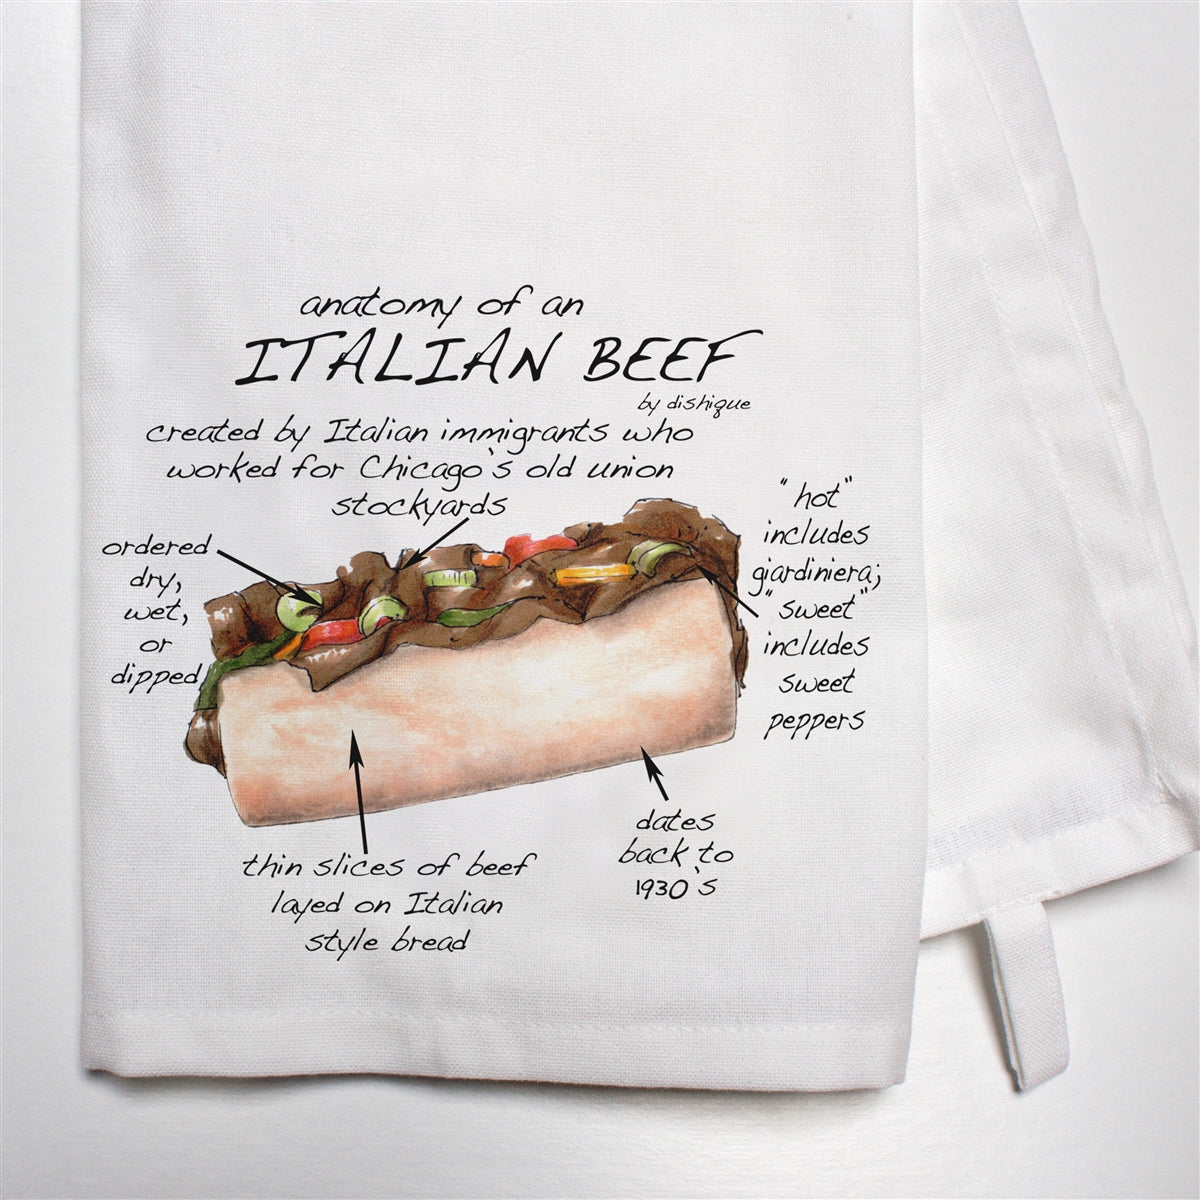 anatomy of an
ITALIAN BEEF
by dishique
created by Italian immigrants who
worked for Chicago`s old union
stockyards
ordered
dry,
wet,
or
dipped
"hot"
includes
giardiniera;
"sweet"
includes
sweet
peppers
thin slices of beef
layed on Italian
style bread
dates
back to
1930`s